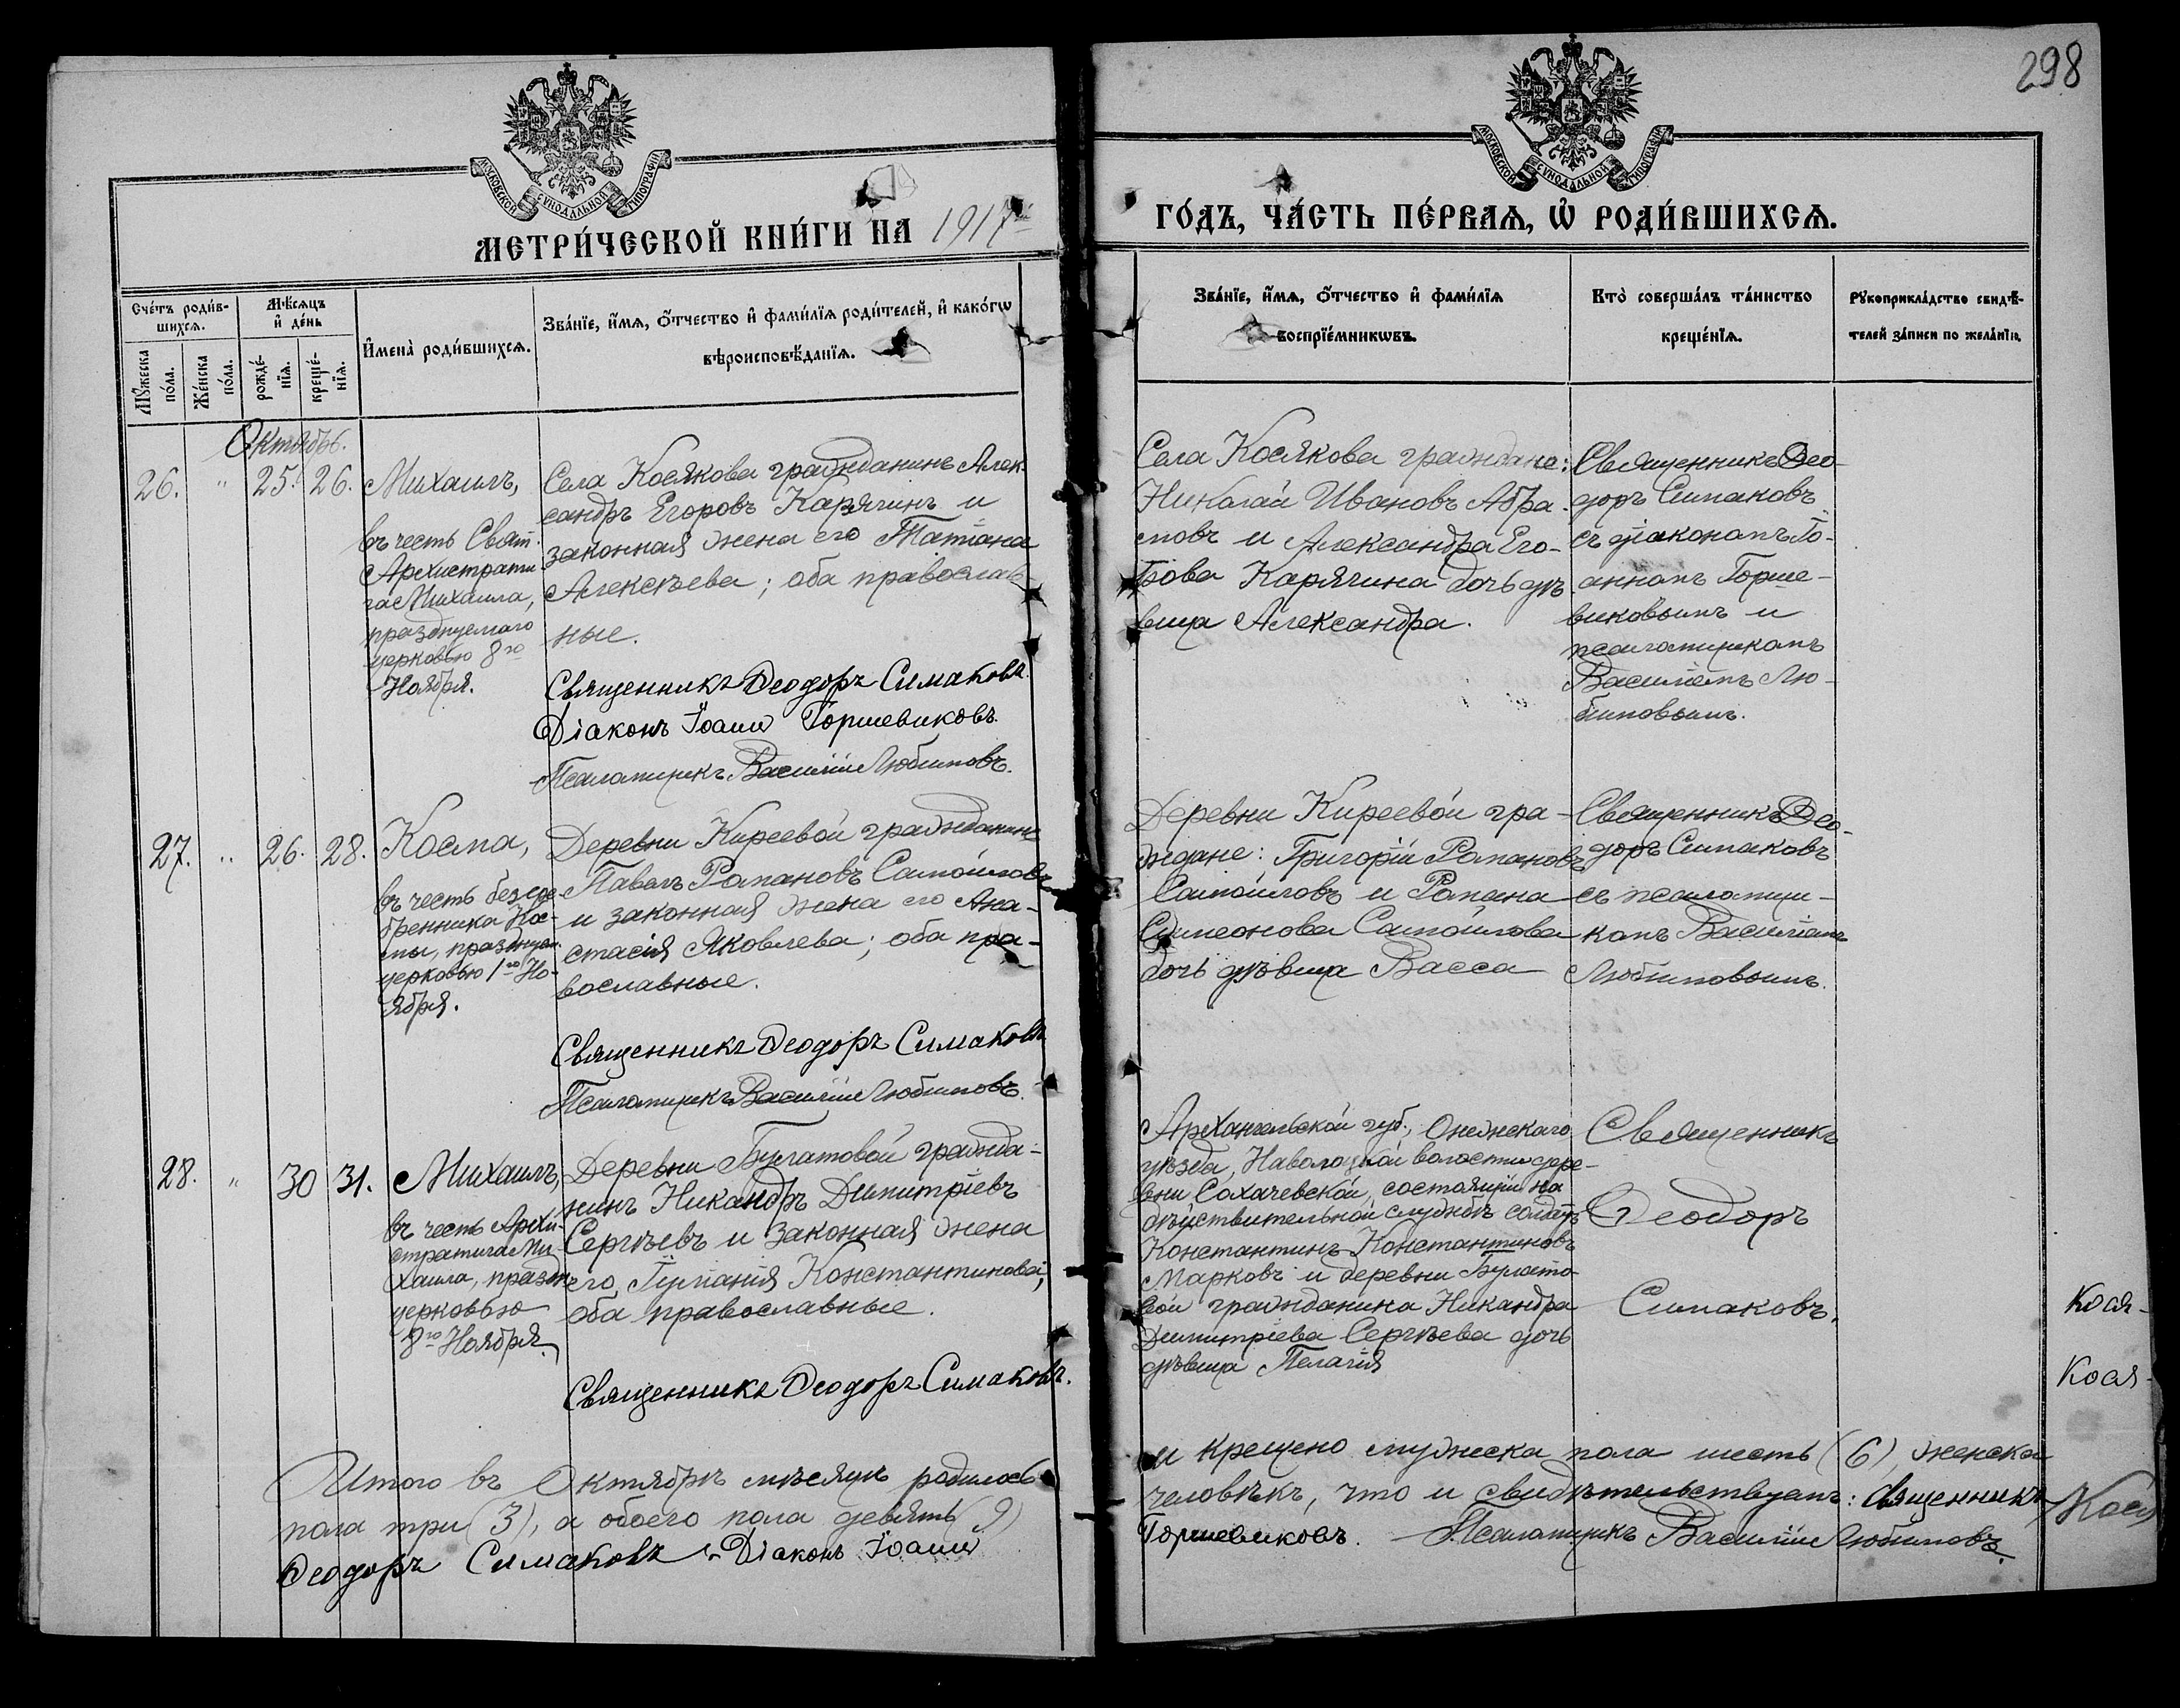 298
МОСКОВСКОЙ СѴНОДАЛЬНОЙ ТИПОГРАФІИ
МОСКОВСКОЙ СѴНОДАЛЬНОЙ ТИПОГРАФІИ
МЕТРИ́ЧЕСКОЙ КНИ́ГИ НА 1917й
ГО́ДЪ, ЧА́СТЬ ПЕ́РВАѦ, Ѡ҆ РОДИ́ВШИХСѦ.
Сче́тъ роди́в-
шихсѧ.
Мѣ́сѧцъ
и҆ де́нь
Мꙋ́жеска
по́ла.
Же́нска
по́ла.
рожде́-
нїѧ.
креще́-
нїѧ.
И҆мена̀ роди́вшихсѧ.
Зва́нїе, и҆́мѧ, ѻ҆́тчество и҆ фами́лїѧ роди́телей, и҆ како́гѡ
вѣроисповѣ́данїѧ.
Зва́нїе, и҆́мѧ, ѻ҆́тчество и҆ фами́лїѧ
воспрїе́мникѡвъ.
Кто̀ соверша́лъ та́инство
креще́нїѧ.
Рꙋкоприкла́дство свидѣ́-
телей за́писи по жела́нїю.
Октябрь.
26. " 25. 26.
Михаилъ,
въ честь Свят.
Архистрати-
га Михаила,
празднуемаго
церковью 8го
Ноября.
Села Косякова гражданинъ Алек-
сандръ Егоровъ Карягинъ и
законная жена его Татіана
Алексѣева; оба православ-
ные.
Священникъ Ѳеодоръ Симаковъ.
Діаконъ Іоаннъ Горшевиковъ.
Псаломщикъ Василій Любимовъ.
Села Косякова граждане:
Николай Ивановъ Абра-
мовъ и Александра Его-
рова Карягина дочь дѣ-
вица Александра.
Священникъ Ѳео-
доръ Симаковъ
съ діакономъ Іо-
анномъ Горше-
виковымъ и
псаломщикомъ
Василіемъ Лю-
бимовымъ.
27. " 26. 28.
Косма,
въ честь безсре-
бренника Кос-
мы, празднуем.
церковью 1го Но-
ября.
Деревни Киреевой гражданинъ
Павелъ Романовъ Самойловъ
и законная жена его Ана-
стасія Яковлева; оба пра-
вославные.
Священникъ Ѳеодоръ Симаковъ
Псаломщикъ Василій Любимовъ.
Деревни Киреевой гра-
ждане: Григорій Романовъ
Самойловъ и Романа
Симеонова Самойлова
дочь дѣвица Васса
Священникъ Ѳео-
доръ Симаковъ
съ псаломщи-
комъ Василіемъ
Любимовымъ.
28. " 30 31.
Михаилъ,
въ честь Архи-
стратига Ми-
хаила, праздн.
церковью
8го Ноября.
Деревни Булатовой гражда-
нинъ Никандръ Димитріевъ
Сергѣевъ и законная жена
его, Іуліанія Константинова;
оба православные.
Священникъ Ѳеодоръ Симаковъ.
Архангельской губ., Онежскаго
уѣзда, Наволоцкой волости дере-
вни Сохачевской, состоящій на
дѣйствительной службѣ солдатъ
Константинъ Константиновъ
Марковъ и деревни Булато-
вой гражданина Никандра
Димитріева Сергѣева дочь
дѣвица Пелагія
Священникъ
Ѳеодоръ
Симаковъ.
Кося-
Кося-
Итого въ Октябрѣ мѣсяцѣ родилось
и крещено мужеска пола шесть (6), женска
пола три (3), а обоего пола девять (9)
человѣкъ, что и свидѣтельствуемъ: Священникъ
Кося
Ѳеодоръ Симаковъ Діаконъ Іоаннъ
Горшевиковъ. Псаломщикъ Василій Любимовъ.